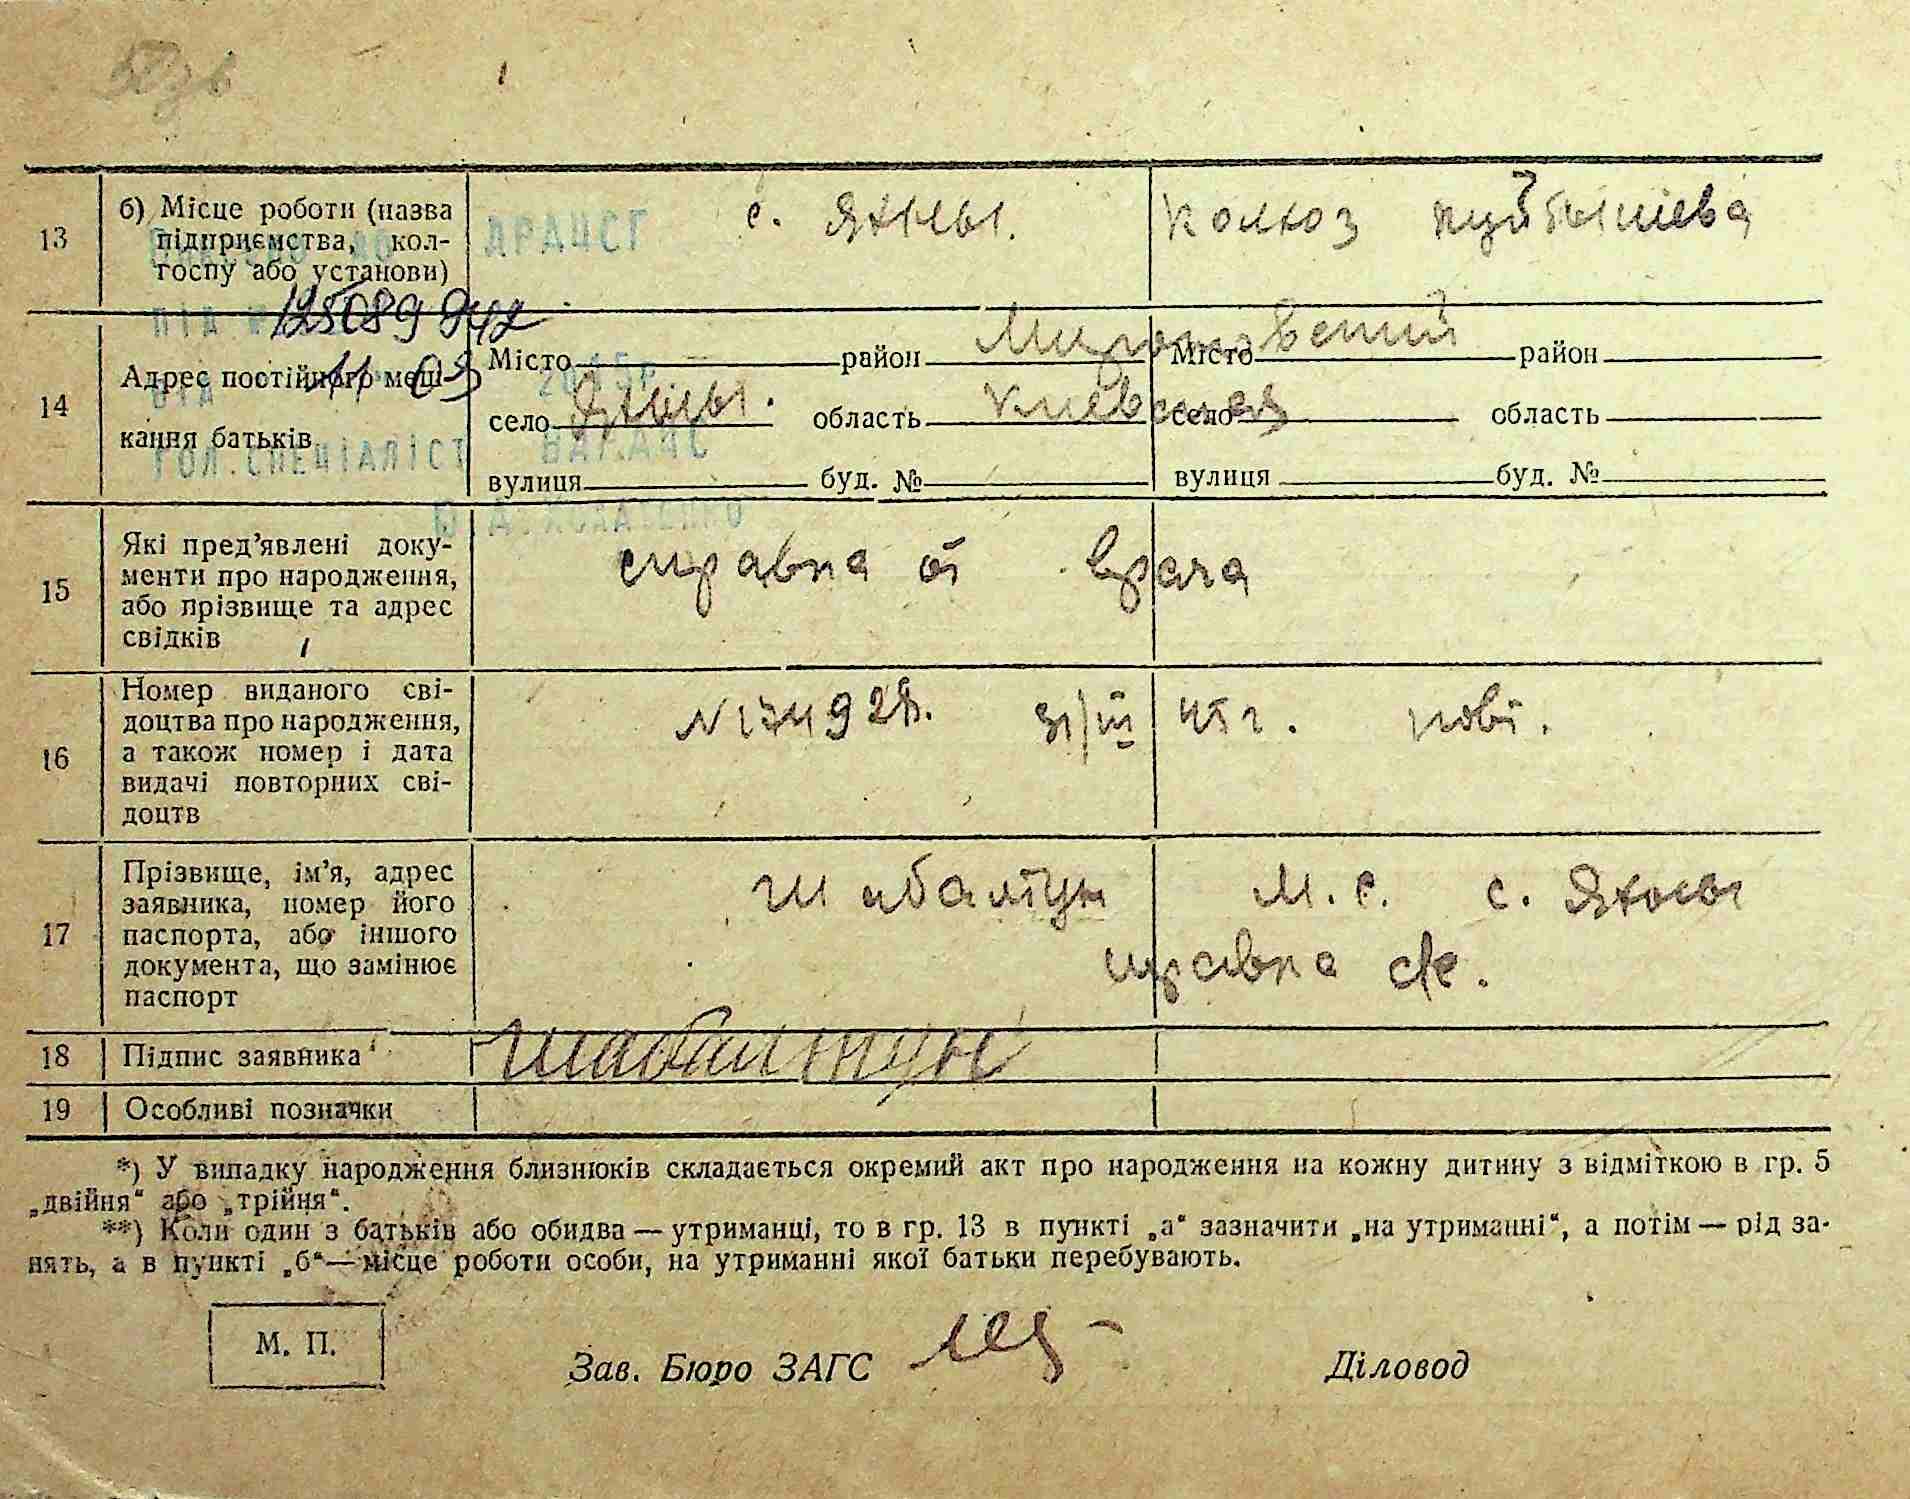 13 б) Місце роботи (назва підприємства, кол-
госпу або установи)
с. Яхны. Колхоз Куйбышева
ДРАЦСГ
125089942
11 03 2015р.
ГОЛ.СПЕЦІАЛІСТ
14 Адрес постійного мешкання батьків
Місто район Мироновский Місто район
село Яхны. область Киевская село область
вулиця буд. № вулиця буд. №
15 Які пред'явлені доку-
менти про народження,
або прізвище та адрес
свідків
справка от врача
16 Номер виданого сві-
доцтва про народження,
а також номер і дата
видачі повторних сві-
доцтв
31/III 45 г.
17 Прізвище, ім'я, адрес
заявника, номер його
паспорта, або іншого
документа, що замінює
паспорт
Шабалтун М. С. с. Яхны
справка с/с.
18 Підпис заявника Шабалтун
19 Особливі позначки
*) У випадку народження близнюків складається окремий акт про народження на кожну дитину з відміткою в гр. 5
„двійня“ або „трійня“.
**) Коли один з батьків або обидва — утриманці, то в гр. 13 в пункті „а“ зазначити „на утриманні“, а потім — рід за-
нять, а в пункті „б“ — місце роботи особи, на утриманні якої батьки перебувають.
М. П.
Зав. Бюро ЗАГС Діловод